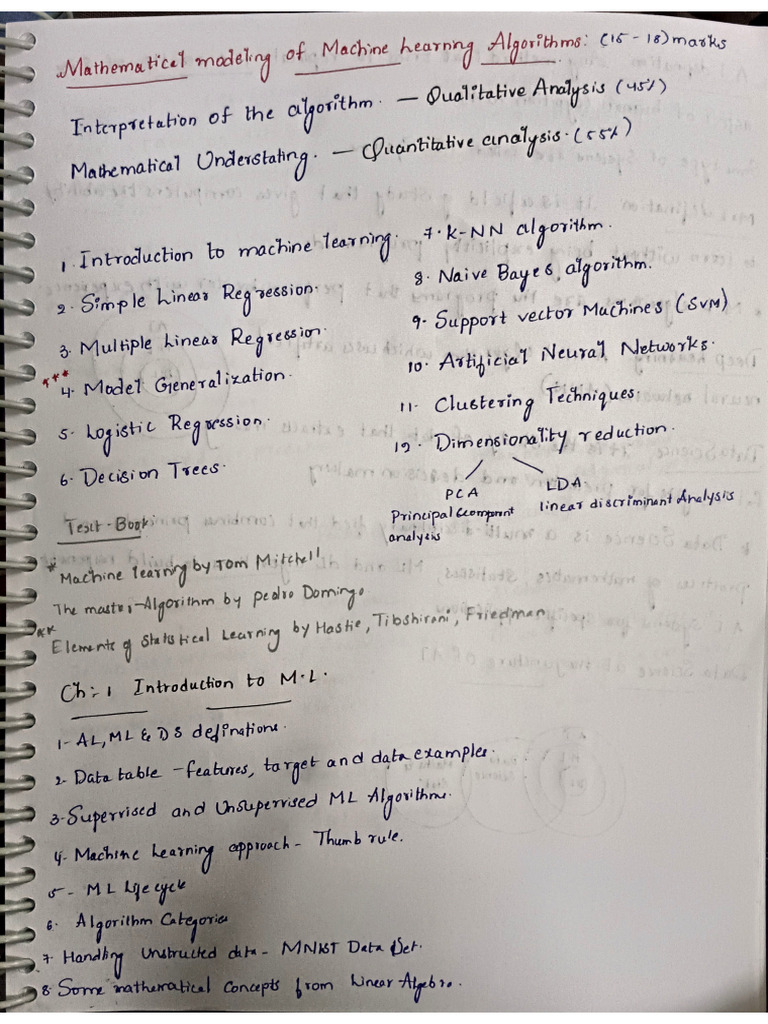 Mathematical modeling of Machine Learning Algorithms: (15 - 18) marks
Interpretation of the algorithm. — Qualitative Analysis (45%)
Mathematical Understating. — Quantitative analysis. (55%)
1. Introduction to machine learning.
2. Simple Linear Regression.
3. Multiple Linear Regression.
*** 4. Model Generalization.
5. Logistic Regression.
6. Decision Trees.
7. K-NN algorithm.
8. Naive Bayes algorithm.
9. Support vector Machines (SVM)
10. Artificial Neural Networks.
11. Clustering Techniques.
12. Dimensionality reduction.
PCA
Principal Component
analysis
LDA
linear discriminant Analysis
Text-Book
* Machine learning by Tom Mitchell
The master-Algorithm by Pedro Domingo
** Elements of Statistical Learning by Hastie, Tibshirani, Friedman
Ch:-1 Introduction to M.L.
1- AL, ML & DS definations.
2- Data table - features, target and data examples.
3- Supervised and Unsupervised ML Algorithms.
4- Machine Learning approach - Thumb rule.
5- ML life cycle
6. Algorithm Categories
7. Handling Unstructed data - MNIST Data Set.
8. Some mathematical concepts from Linear Algebra.